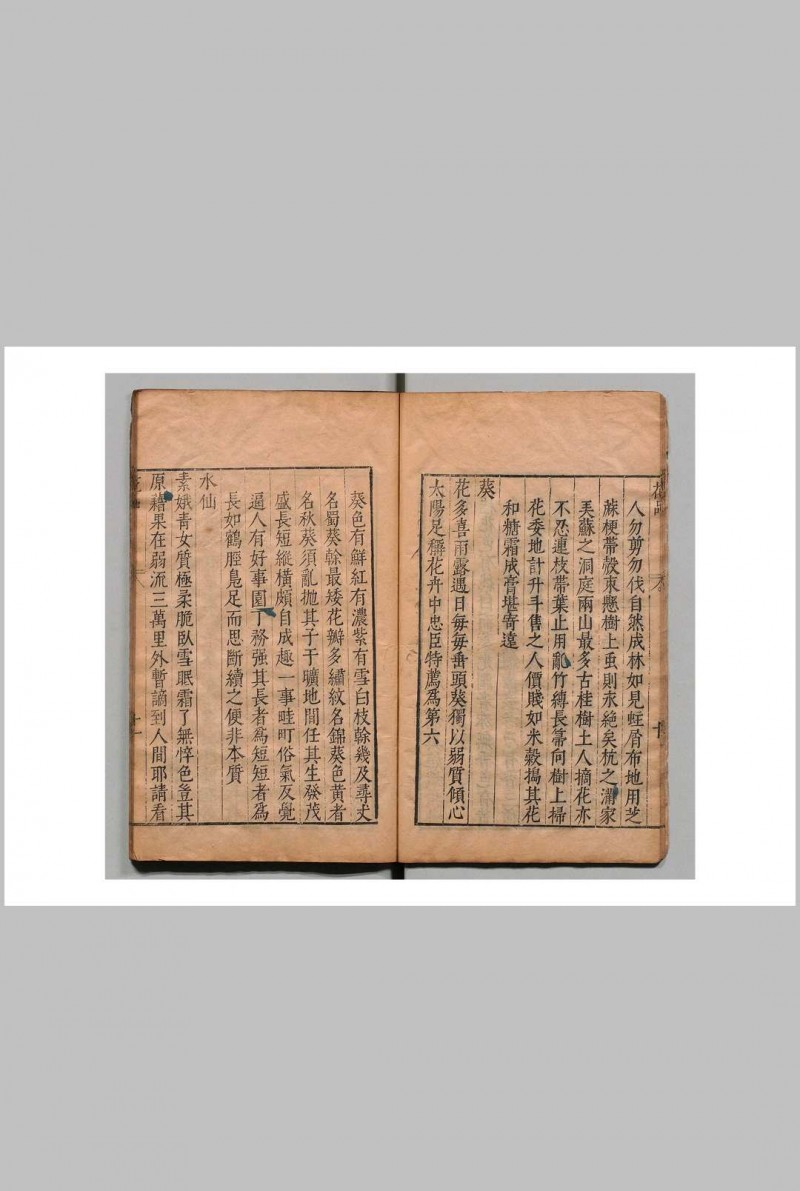 人勿剪勿伐自然成林如見蛀屑布地用芝
蔴梗帶殼束懸樹上虫則永絕矣杭之滿家
美蘇之洞庭兩山最多古桂樹土人摘花亦
不忍連枝帶葉止用亂竹縛長箒向樹上掃
花委地計升斗售之人價賤如米穀搗其花
和糖霜成膏堪寄遠
葵
花多喜雨露遇日每每垂頭葵獨以弱質傾心
太陽足稱花卉中忠臣特薦為第六
葵色有鮮紅有濃紫有雪白枝幹幾及尋丈
名蜀葵幹最矮花瓣多繡紋名錦葵色黃者
名秋葵須亂拋其子于曠地間任其生發茂
盛長短縱橫頗自成趣一事畦町俗氣反覺
逼人有好事園丁務强其長者為短短者為
長如鶴脛鳧足而思斷續之便非本質
水仙
素娥青女質極柔脆臥雪眠霜了無悴色豈其
原藉果在弱流三萬里外暫謫到人間耶請看